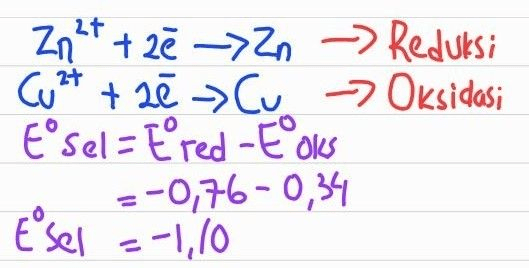 Zn²⁺ + 2ē → Zn → Reduksi
Cu²⁺ + 2ē → Cu → Oksidasi
E⁰ sel = E⁰ red - E⁰ oks
= -0,76 - 0,34
E⁰ sel = -1,10